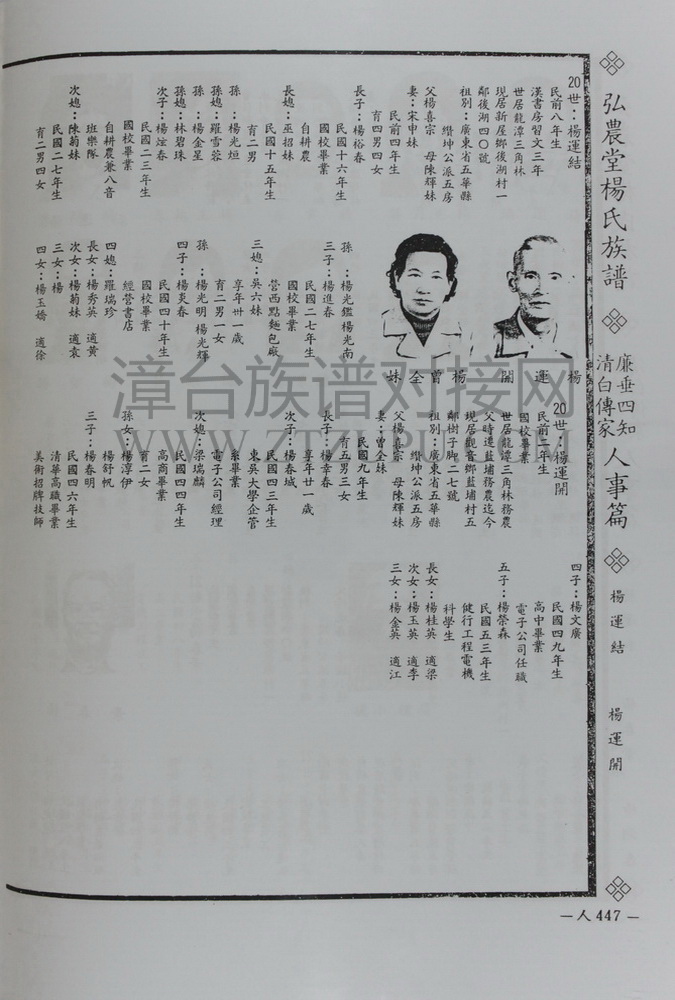 弘農堂楊氏族譜
廉垂四知
清白傳家
人事篇
楊運結
楊運開
20世：楊運結
民前八年生
漢書房習文三年
世居龍潭三角林
現居新屋鄉後湖村一
鄰後湖四〇號
祖別：廣東省五華縣
縉坤公派五房
父楊喜宗 母陳輝妹
妻：宋申妹
民前四年生
育四男四女
長子：楊裕春
民國十六年生
國校畢業
自耕農
長媳：巫招妹
民國十五年生
育二男
孫：楊光烜
孫媳：羅雪蓉
孫：楊金星
孫媳：林碧珠
次子：楊炫春
民國二三年生
國校畢業
自耕農兼八音
班樂隊
次媳：陳菊妹
民國二七年生
育二男四女
孫：楊光鑑楊光南
三子：楊進春
民國二七年生
國校畢業
營西點麵包廠
三媳：吳六妹
享年卅一歲
育二男一女
孫：楊光明 楊光輝
四子：楊炎春
民國四十年生
國校畢業
經營書店
四媳：羅瑞珍
長女：楊秀英 適黃
次女：楊菊妹 適袁
三女：楊
四女：楊玉嬌 適徐
楊運開
楊曾全妹
20世：楊運開
民前二年生
國校畢業
世居龍潭三角林務農
父時遷藍埔務農迄今
現居觀音鄉藍埔村五
鄰樹子脚二七號
祖別：廣東省五華縣
縉坤公派五房
父楊喜宗 母陳輝妹
妻：曾全妹
民國九年生
育五男三女
長子：楊幸春
享年廿一歲
次子：楊春城
民國四三年生
東吳大學企管
系畢業
電子公司經理
次媳：梁瑞麟
民國四四年生
高商畢業
育二女
孫女：楊淳伊
楊舒帆
三子：楊春明
民國四六年生
清華高職畢業
美術招牌技師
四子：楊文廣
民國四九年生
高中畢業
電子公司任職
五子：楊榮森
民國五三年生
健行工程電機
科學生
長女：楊桂英 適梁
次女：楊玉英 適李
三女：楊金英 適江
—人447—
漳台族谱对接网
WWW.ZTZUPU.COM